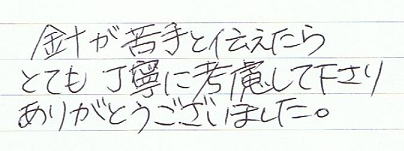 針が苦手と伝えたら
とても丁寧に考慮して下さり
ありがとうございました。